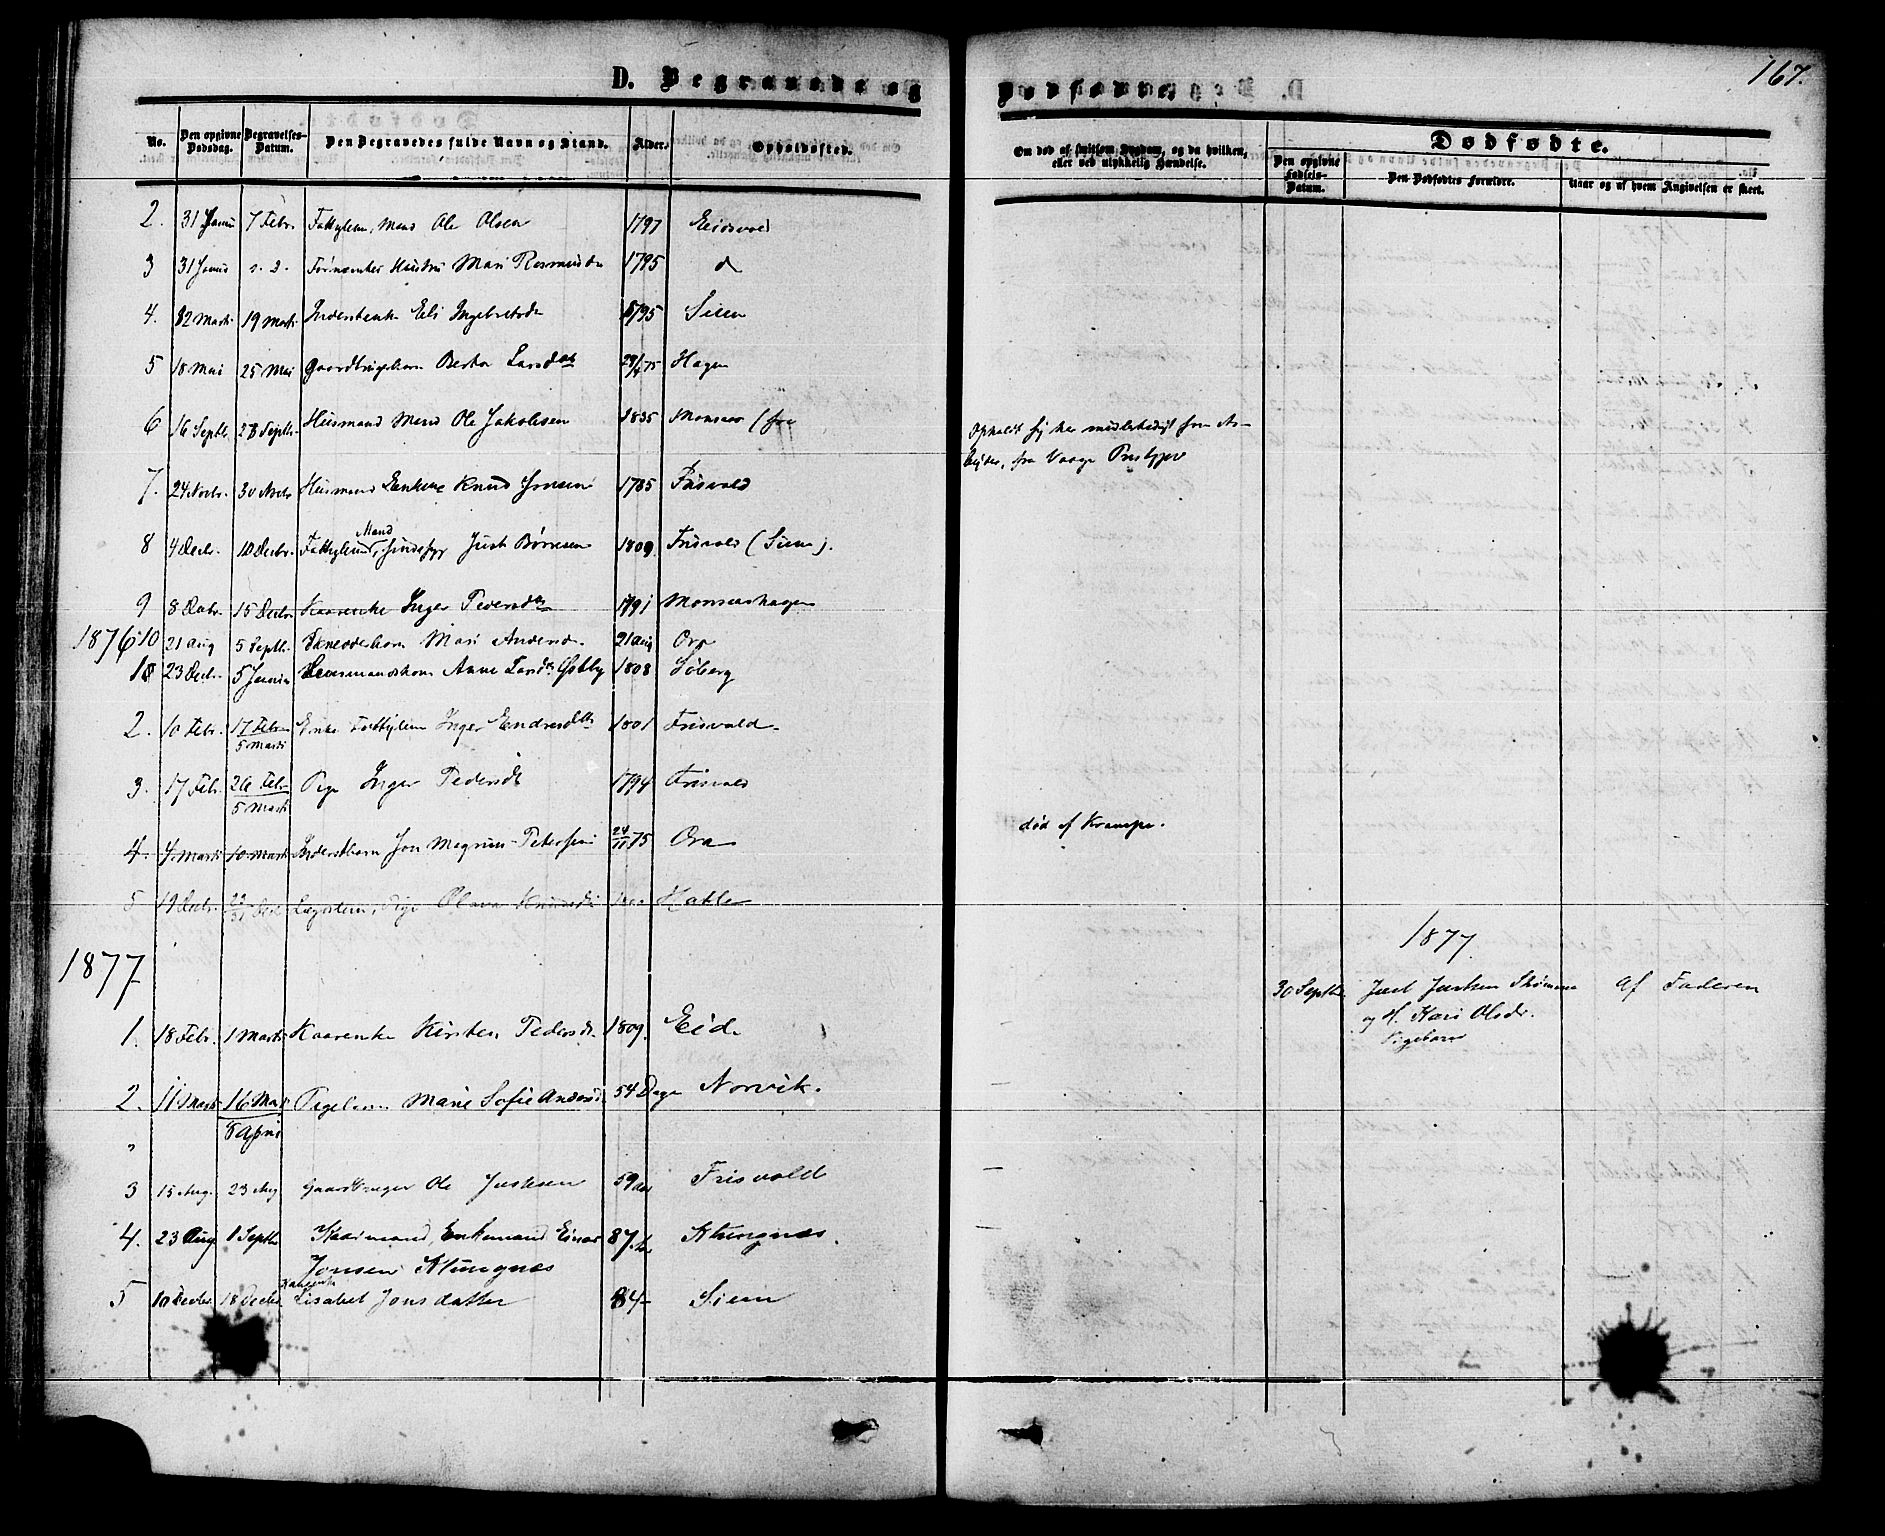 167.
D. Begravede og Dødfødte.
No. Den opgivne Dødsdag. Begravelses-Datum. Den Begravedes fulde Navn og Stand. Alder. Opholdssted. Om død af smitsom Sygdom, og da hvilken, eller ved ulykkelig Hændelse.
Dødfødte.
Den opgivne Fødsels-Datum. Den Dødfødtes Forældre. Naar og af hvem Angivelsen er skeet.
2. 31 Januar 7 Febr. Fattiglem, Mand Ole Olsen 1797 Eidsvaa
3 31 Januar s. d. Mari Rasmusdr 1795 d
4. 12 Marts 19 Marts Eli Ingebretsdr 1795 Siem
5 18 Mai 25 Mai Gaardbrugerbarn Berta Larsdtr 29/4 75 Hagen
6 16 Septbr. 23 Septbr. Husmand Mand Ole Jakobsen 1835 Monsaas (fra
Opholdt sig her midlertidigt som Ar-
beider, fra Vaage Prestgjæld
7. 24 Novbr. 30 Novbr. Husmand Enkem. Knud Jonsen 1785 Frisvold
8 4 Decbr. 10 Decbr. Fattiglem, Mand Just Børresen 1809. Frisvold (Siem).
9 8 Decbr. 15 Decbr. Kaarenke Inger Pedersdtr 1791 Monsaashagen
1876 10 21 Aug 5 Septbr. Mari Andersdr. 21 Aug Ora
1 23 Decbr. 5 Januar Lensmandskone Anne Larsdtr Østby 1808 Søberg
2. 10 Febr. 17 Febr. Enke Fattiglem Inger Endresdtr 1801 Frisvold
5 Marts
3. 17 Febr. 26 Febr. Pige Inger Pedersdtr 1794 Frisvold
5 Marts
4. 4 Marts 10 Marts Inderstbarn Jon Magnus Petersen 24/11 75 Ora død af Krampe.
5 19 Decbr. Lægdslem, Pige Olava Knudsdtr Hatle
1877 1877.
30 Septbr. Just Justsen Strømme af Faderen
og H. Kari Olsdr.
Pigebarn
1. 18 Febr. 1 Marts Kaarenke Kirsten Pedersdr. 1809. Eid.
2. 11 Marts 16 Marts Pigebarn Marie Sofie Andersdr. 54 Dage Norvik.
8 April
3 15 Aug. 23 Aug Gaardbruger Ole Justsen 59 Aar Frisvold
4. 23 Aug 1 Septbr Kaarmand, Enkemand Einar 87 Klungnæs.
Jonsen Klungnæs
5 10 Decbr. 18 Decbr. Kaarenke Lisabet Jonsdatter 84 Siem